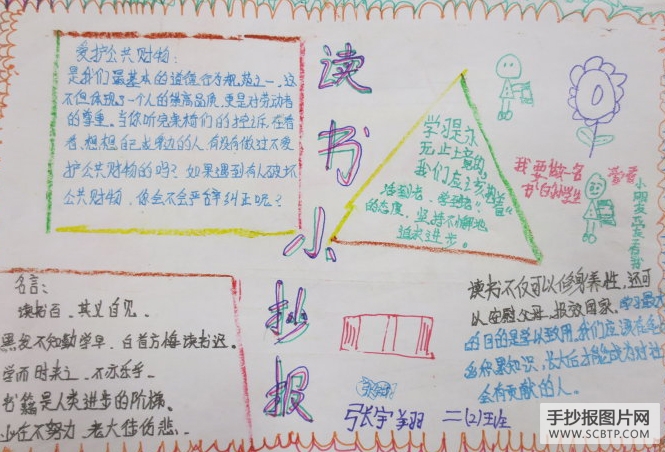 读书小抄报
爱护公共财物:
是我们最基本的道德行为规范之一,这
不但体现了一个人的崇高品质,更是对劳动者
的尊重。当你听完桌椅们的控诉,在看
看,想想自己或身边的人,有没有做过不爱
护公共财物的吗?如果遇到有人破坏
公共财物,你会不会严辞纠正呢?
学习是永
无止境的
我们应该抱着
活到老,学到老"
的态度,坚持不懈地
追求进步。
我要做一名
书白的学生
爱看
小朋友
名言:
读书百,其义自见.
黑发不知勤学早,白首方悔读书迟。
学而时来之,不亦乐乎.
书籍是人类进步的阶梯.
少在不努力,老大徒伤悲.
读书不仅可以修身养性,还可
以安慰父母,报效国家.学习最大
的目的是学以致用,我们应该在
累知识,长大后才能成为对社
会有贡献的人。
张宇翔 二(2)班
手抄报图片网
WWW.SCBTP.COM